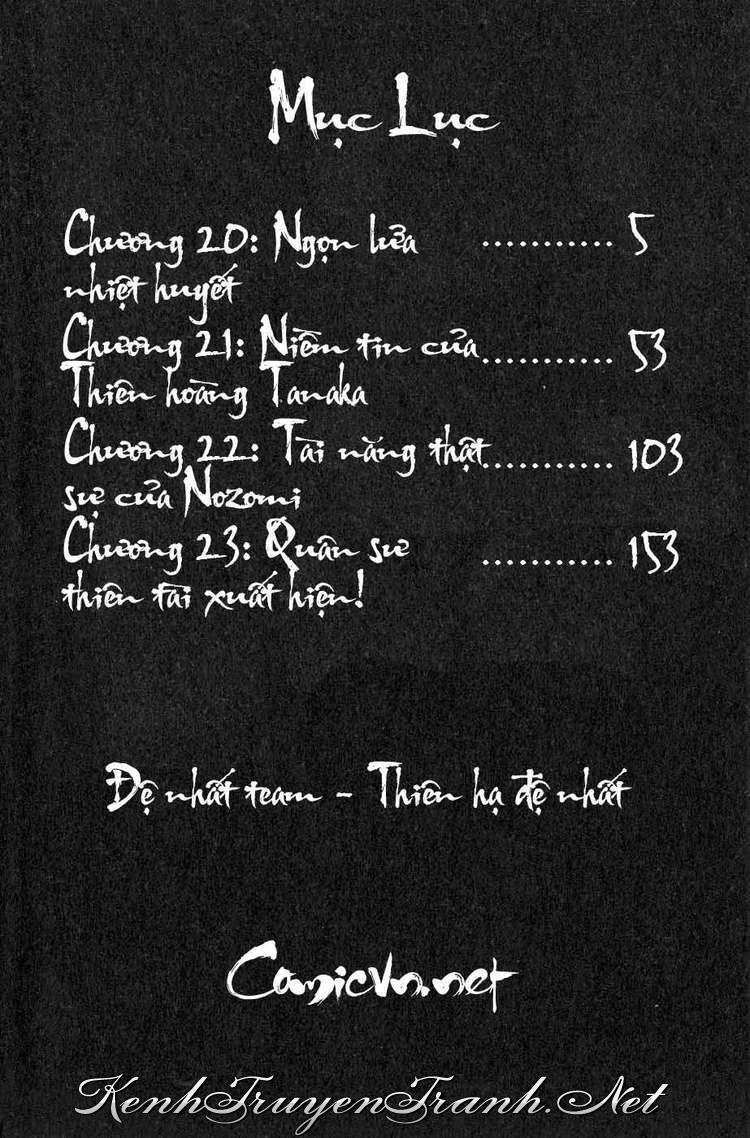 Mục Lục
Chương 20: Ngọn lửa ........... 5
nhiệt huyết
Chương 21: Niềm tin của ........... 53
Thiên hoàng Tanaka
Chương 22: Tài năng thật ........... 103
sự của Nozomi
Chương 23: Quân sư ........... 153
thiên tài xuất hiện!
Đệ nhất team - Thiên hạ đệ nhất
Comicvn.net
KenhTruyenTranh.Net